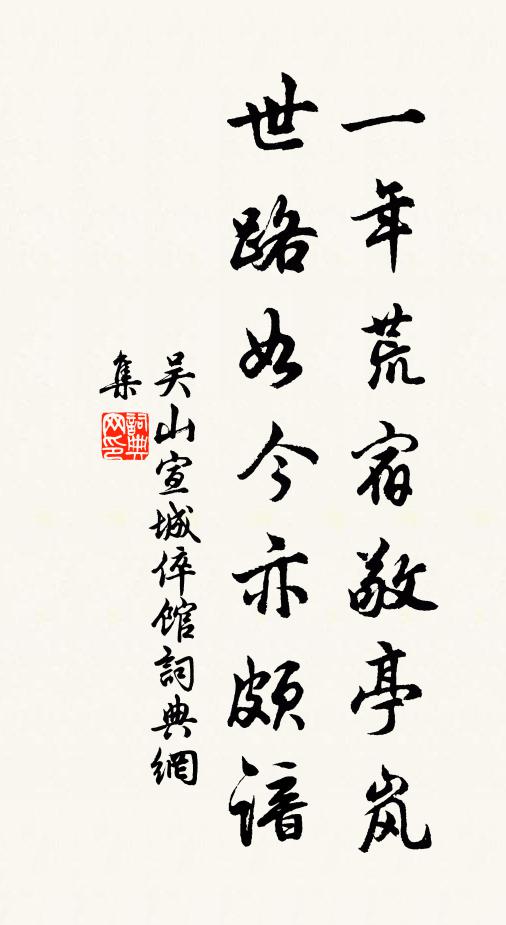 一年荒宿敬亭岚
世路如今亦颇谙
吴山宣城倅馆詞典網
集
詞典网印